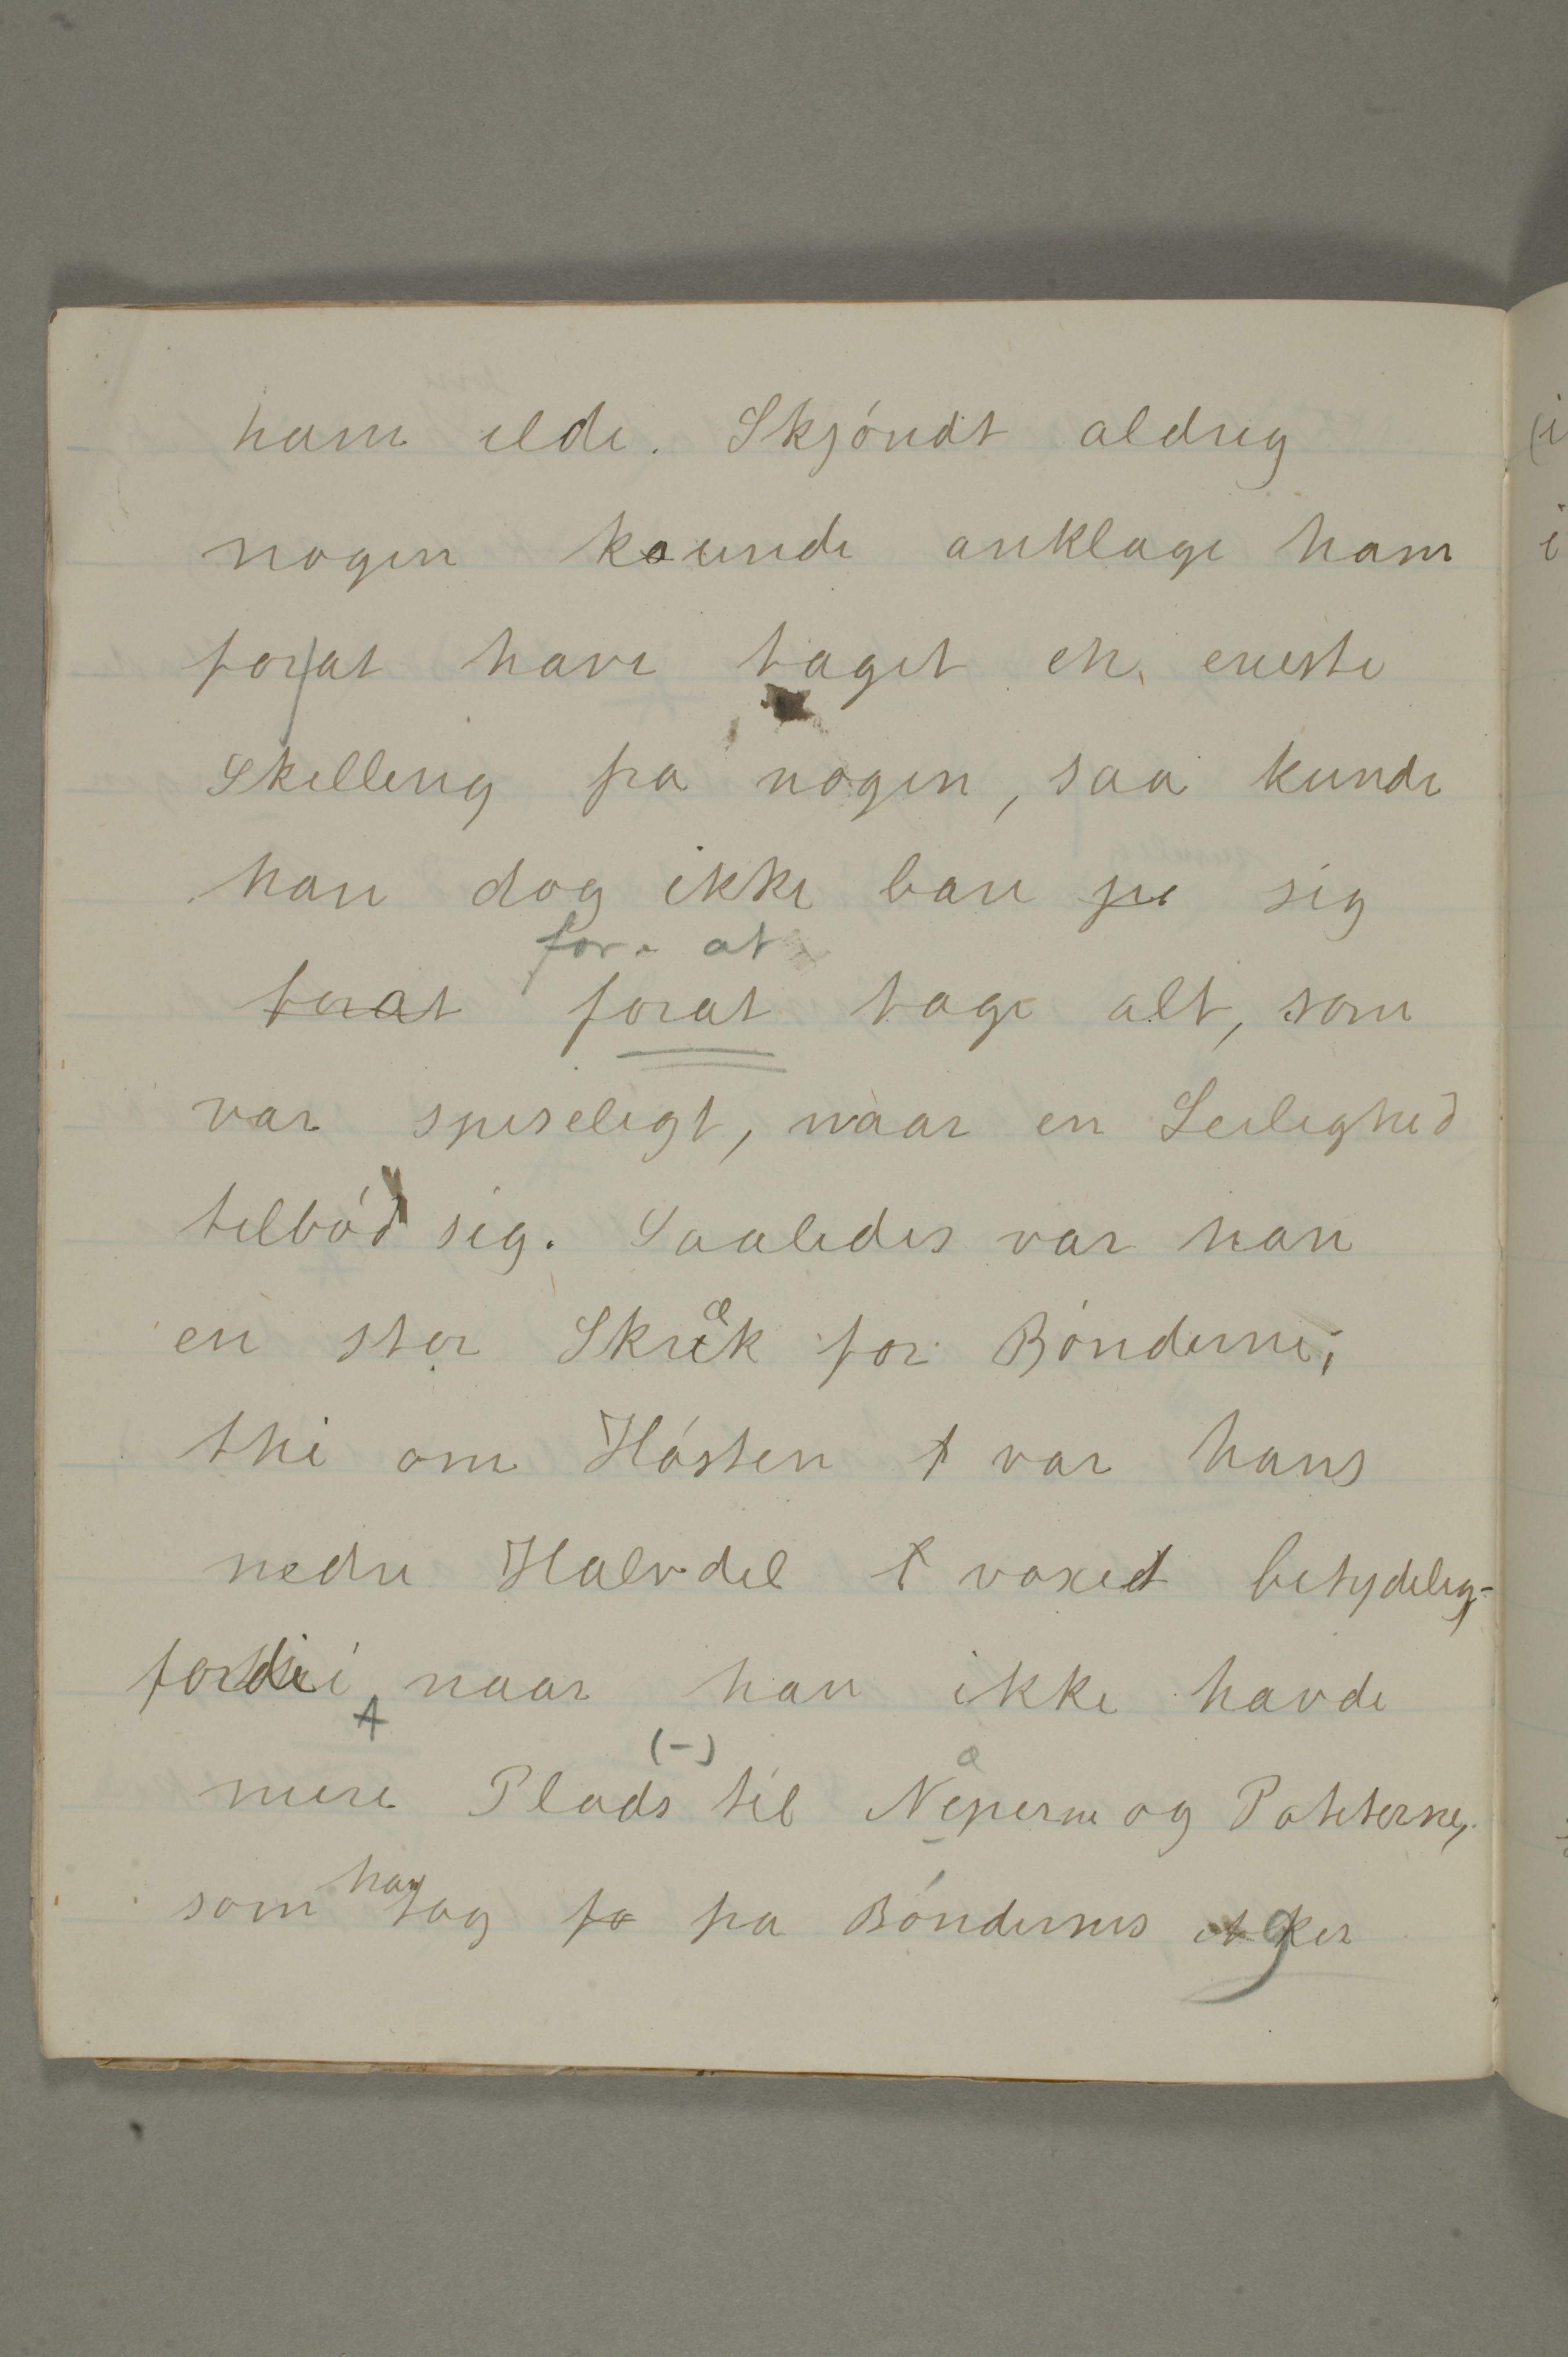 ham ilde. Skjóndt aldrig
nogen kounde anklage ham
for|at have taget en eneste
Skilling fra nogen, saa kunde
han dog ikke bare sig
for at
forat forat tage alt, som
var spiseligt, naar en Leilighed
tilbód sig. Saaledes var han
en stor Skræk for Bónderne;
thi om Hósten t var hans
nedre Halvdel t voxet betydelig-
fordi naar han ikke havde
mere Plads (-) til Neperne og Poteterne,
som han tog fo fra Bóndernes Ager